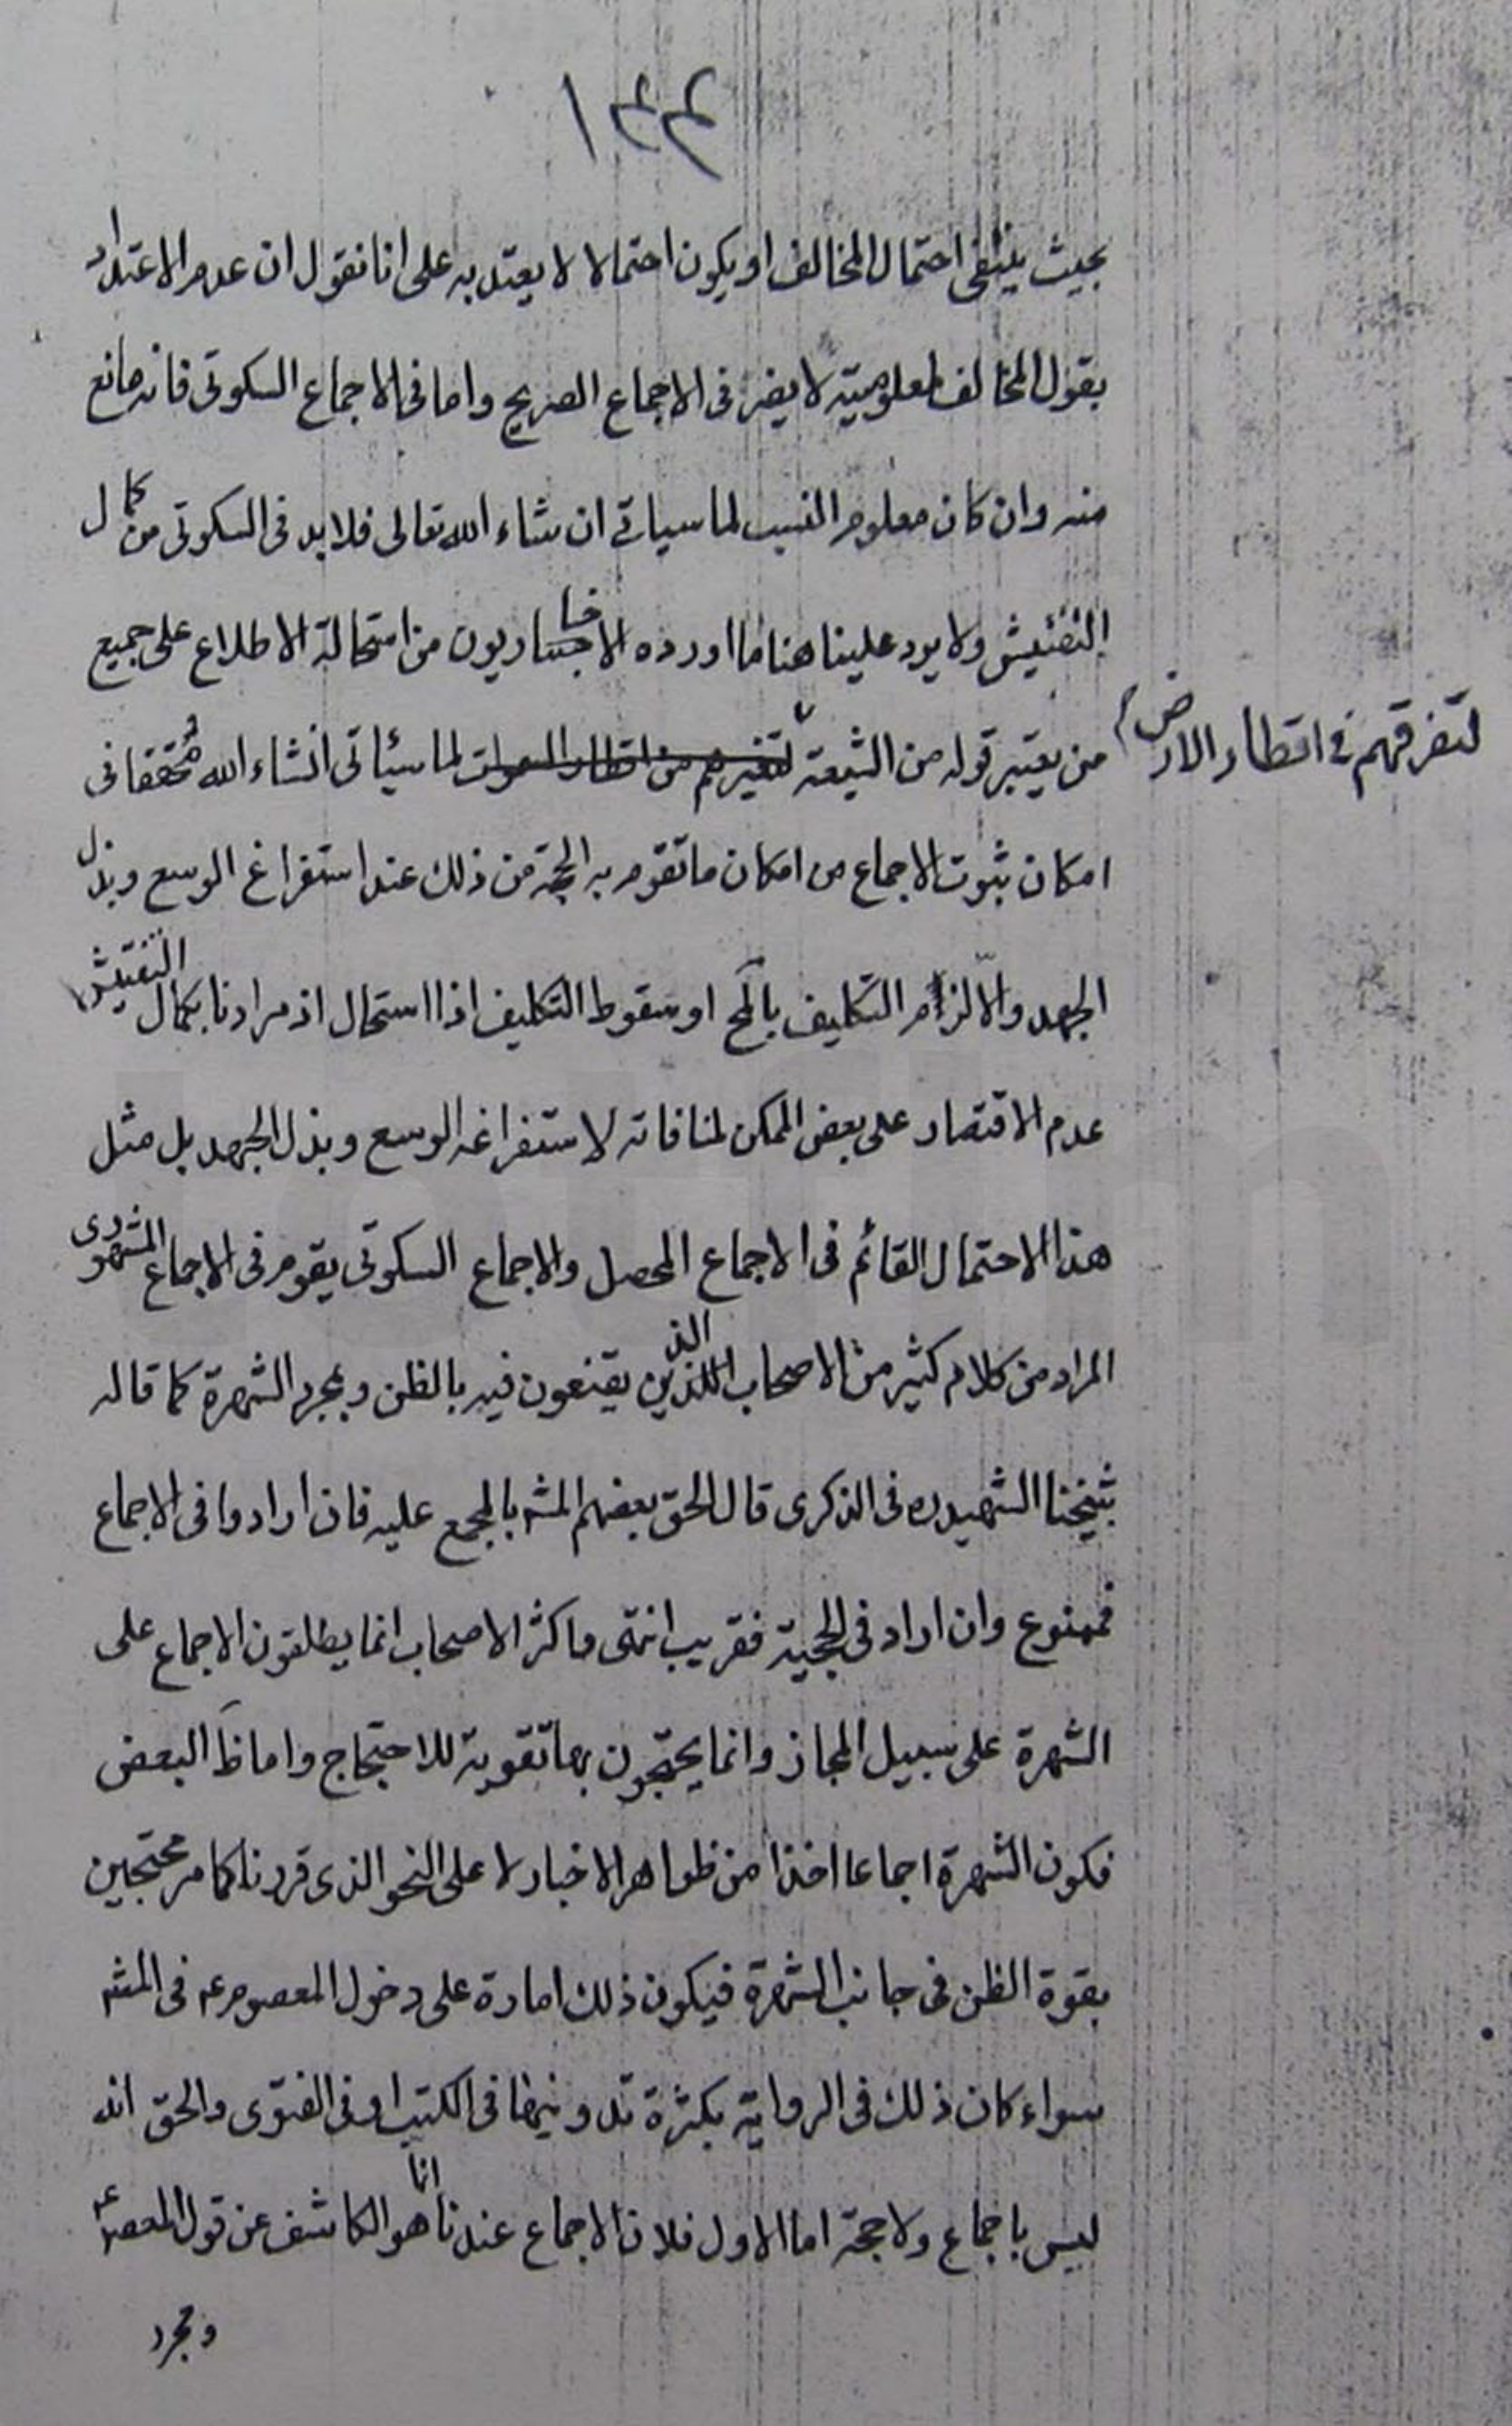 ١٣٣
بحيث ينتفى احتمال المخالف او يكون احتمالا لا يعتد به على انا نقول ان عدم الاعتداد
بقول المخالف لمعلوميته لا يضر فى الاجماع الصريح واما فى الاجماع السكوتى فانه مانع
منه وان كان معلوم النسب لما سياتى ان شاء الله تعالى فلا بد فى السكوتى من كمال
التفتيش ولا يرد علينا هنا ما اورده الاخباريون من استحالة الاطلاع على جميع
من يعتبر قوله من الشيعة لما سيأتى انشاء الله محققا فى
لتفرقهم فى اقطار الارض
امكان ثبوت الاجماع من امكان ما تقوم به الحجة من ذلك عند استفراغ الوسع وبذل
الجهد والّا لزم التكليف بالمح او سقوط التكليف اذا استحال اذ مرادنا بكمال التفتيش
عدم الاقتصار على بعض الممكن لمنافاته لاستفراغه الوسع وبذل الجهد بل مثل
هذا الاحتمال القائم فى الاجماع المحصل والاجماع السكوتى يقوم فى الاجماع المشهورى
المراد من كلام كثير من الاصحاب الذين يقنعون فيه بالظن وبمجرد الشهرة كما قاله
شيخنا الشهيد ره فى الذكرى قال الحق بعضهم المشه بالمجمع عليه فان ارادوا فى الاجماع
فممنوع وان اراد فى الحجية فقريب انتهى واكثر الاصحاب انما يطلقون الاجماع على
الشهرة على سبيل المجاز وانما يحتجون بها تقوية للاحتجاج واما ظَ البعض
فكون الشهرة اجماعا اخذا من ظواهر الاخبار لا على النحو الذى قررنا كما مر محتجين
بقوة الظن فى جانب الشهرة فيكون ذلك امارة على دخول المعصوم ع فى المشه
سواء كان ذلك فى الرواية بكثرة تدوينها فى الكتب او فى الفتوى والحق انه
ليس باجماع ولا حجة اما الاول فلان الاجماع عندنا انما هو الكاشف عن قول المعصوم ع
ومجرد